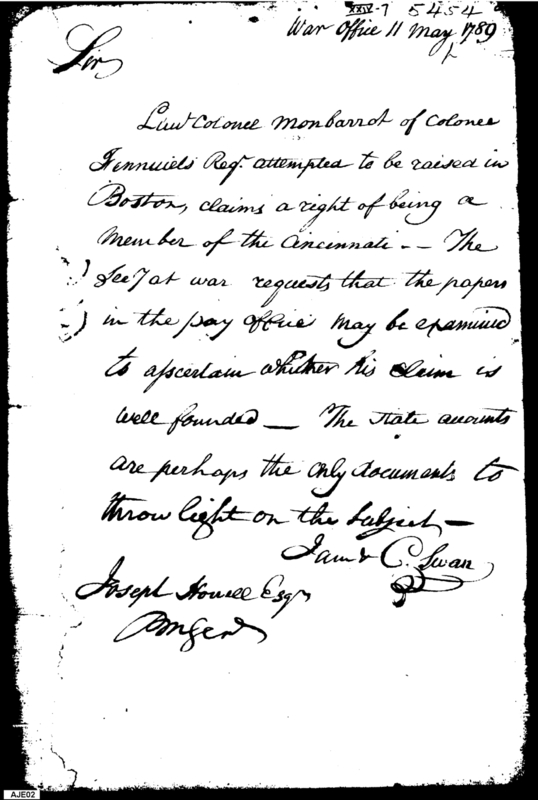 XXIV-7 5454
War Office 11 May 1789
Sir
Lieut Colonel Monbarrot of Colonel
Fennuiels Regt. attempted to be raised in
Boston, claims a right of being a
member of the Cincinnati — The
Secy at war requests that the papers
in the pay office may be examined
to ascertain whether his claim is
well founded — The State accounts
are perhaps the only documents to
throw light on the Subject —
I am & C. Swan
Joseph Howell Esqr
PMGenl
AJE02